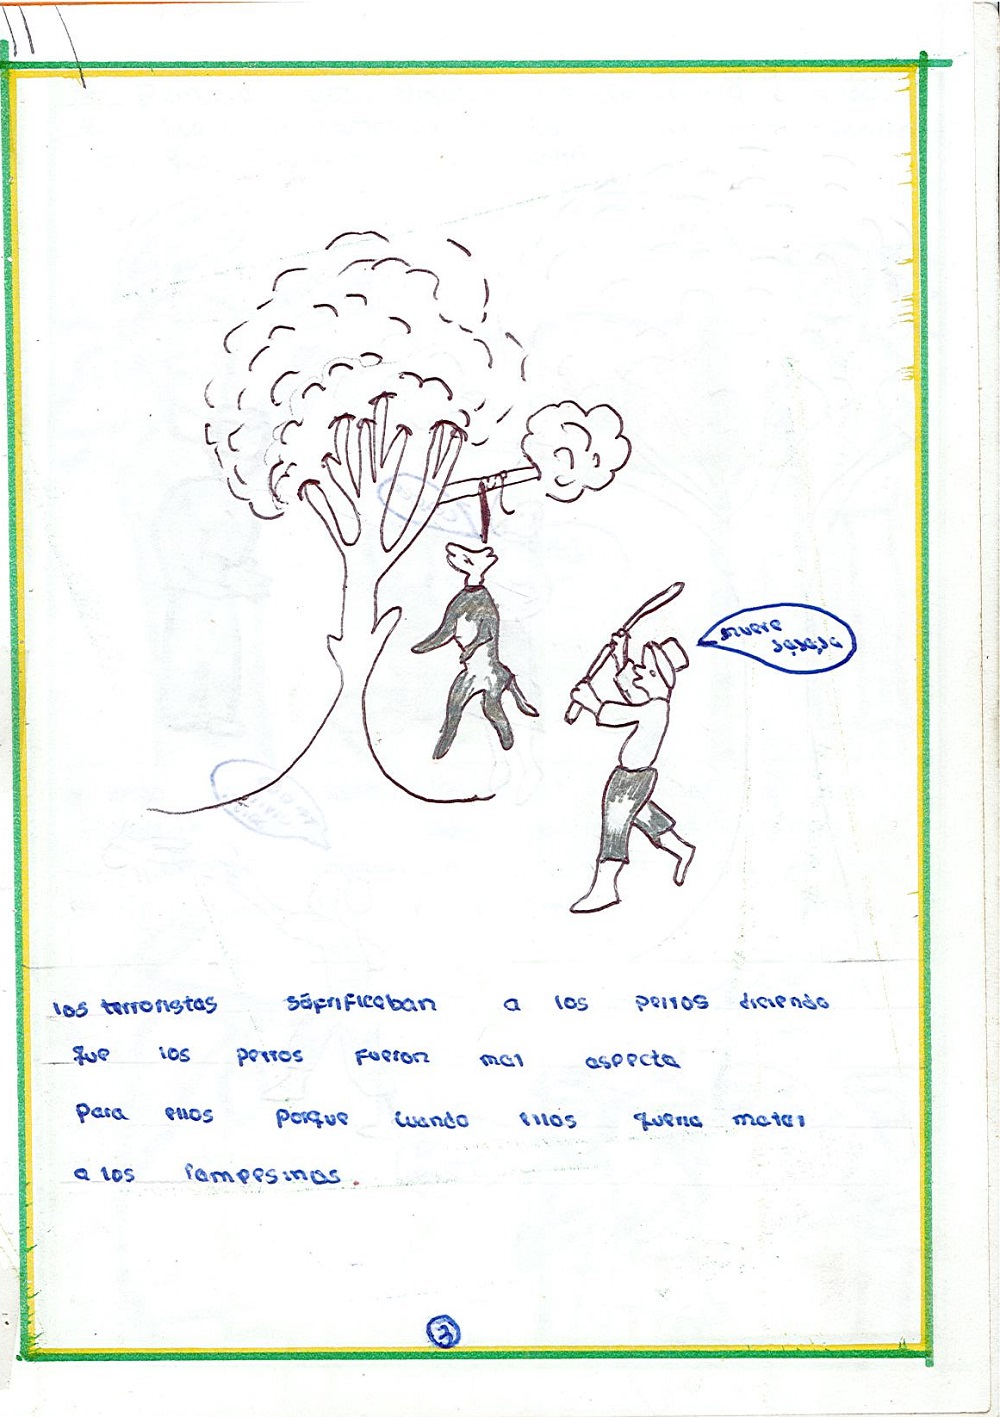 muere
jajaja
los terroristas sacrificaban a los perros diciendo
que los perros fueron mal aspecta
Para ellos porque cuando ellos queria matar
a los campesinas.
3